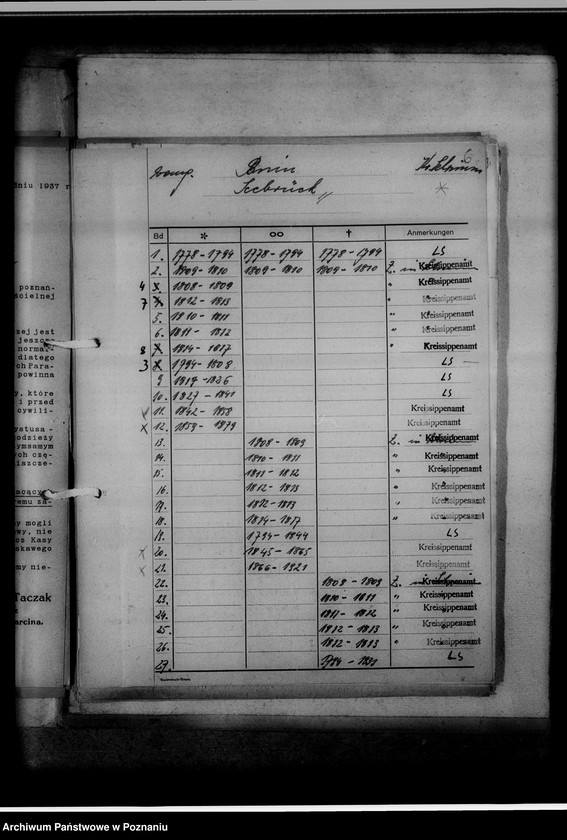 dniu 1937 r
poznan-
ścielnej
zej jest
jeszcze
norma
dlatego
ch Para-
powinna
y, które
i przed
cywili-
ystusa -
odzieży
ymsamym
ych czę-
iaszcze-
y mogli
owy, nie
cz Kasy
skawego
my nie-
Taczak
arcina.
6
Seebrück
Bd * ∞ † Anmerkungen
1. 1778-1794 1778-1794 1778-1794 LS
2. 1809-1810 1809-1810 1809-1810 Z. Kreissippenamt
4 1808-1809 " Kreissippenamt
7 1812-1813 " Kreissippenamt
5. 1810-1811 " Kreissippenamt
6. 1811-1812 " Kreissippenamt
8 1814-1817 " Kreissippenamt
3 1794-1808 LS
9 1818-1826 LS
10. 1827-1841 LS
11. 1842-1858 Kreissippenamt
x 12. 1859-1879 Kreissippenamt
13. 1808-1809 Z. Kreissippenamt
14. 1810-1811 " Kreissippenamt
15. 1811-1812 " Kreissippenamt
16. 1812-1813 " Kreissippenamt
17. 1812-1813 " Kreissippenamt
18. 1814-1817 " Kreissippenamt
19. 1795-1844 LS
x 20. 1845-1865 Kreissippenamt
x 21. 1866-1921 Kreissippenamt
22. 1808-1809 Z. Kreissippenamt
23. 1810-1811 " Kreissippenamt
24. 1811-1812 " Kreissippenamt
25. 1812-1813 " Kreissippenamt
26. 1812-1813 " Kreissippenamt
27. LS
Archiwum Państwowe w Poznaniu